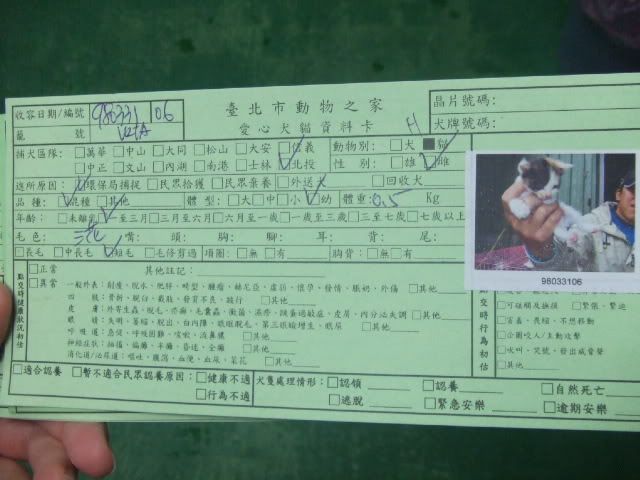 收容日期/編號 980331 06 臺北市動物之家 晶片號碼:
籠 號 愛心犬貓資料卡 犬牌號碼:
捕犬區隊: □萬華 □中山 □大同 □松山 □大安 □信義 動物別: □犬 ■貓
□中正 □文山 □內湖 □南港 □士林 □北投 性 別: □雄 □雌
進所原因: □環保局捕捉 □民眾拾獲 □民眾棄養 □外送犬 □回收犬
品種: □混種 □其他 體 型: □大 □中 □小 □幼 體重: 0.5 Kg
年齡: □未離乳 □一至三月 □三月至六月 □六月至一歲 □一歲至三歲 □三至七歲 □七歲以上
毛色: 三花 嘴: 頭: 胸: 腳: 耳: 背: 尾:
□長毛 □中長毛 □短毛 □毛修剪過 項圈: □無 □有 胸背: □無 □有
98033106
點交時健康狀況初估
□正常 其他註記:
□異常 一般外表: 削瘦、脫水、肥胖、畸型、腫瘤、赫尼亞、虛弱、懷孕、發情、脹奶、外傷 □其他
四 肢: 骨折、脫臼、截肢、發育不良、跛行 □其他
皮 膚: 外寄生蟲、脫毛、疥癬、毛囊蟲、黴菌、濕疹、跳蚤過敏症、皮屑、內分泌失調 □其他
眼 睛: 失明、萎縮、脫出、白內障、眼瞼脫毛、第三眼瞼增生、眼屎 □其他
呼吸道: 急促、呼吸困難、咳嗽、流鼻膿 □其他
神經症狀: 抽搐、偏癱、半癱、昏迷、全癱 □其他
消化道/泌尿道: 嘔吐、腹瀉、血便、血尿、菜花 □其他
點交時行為初估
□可碰觸及撫摸 □緊張、緊迫
□害羞、畏縮、不想移動
□企圖咬人/主動攻擊
□吠叫、哭號、發出威脅聲
□其他
□適合認養 □暫不適合民眾認養原因: □健康不適 犬隻處理情形: □認領 □認養 □自然死亡
□行為不適 □逃脫 □緊急安樂 □逾期安樂